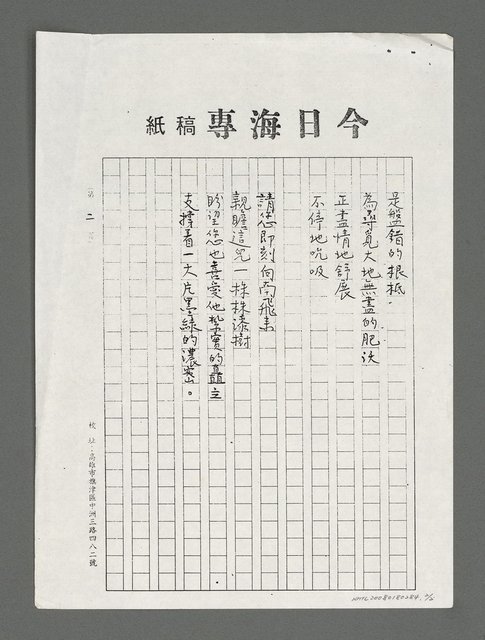 今日海專稿紙
是盤錯的根柢.
為尋覓大地無盡的肥沃
正盡情地舒展
不停地吮吸
請您即刻向南飛來
親瞻這兒一株株漆樹
盼望您也喜愛他堅實的矗立
支撐着一大片墨綠的濃密。
第二
校址:高雄市旗津區中洲三路四八二號